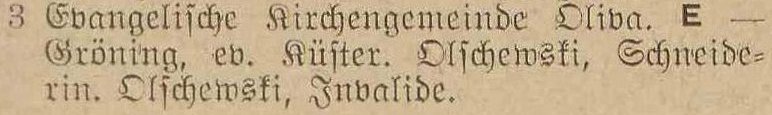 3 Evangelische Kirchengemeinde Oliva. E —
Gröning, ev. Küster. Olschewski, Schneide-
rin. Olschewski, Invalide.